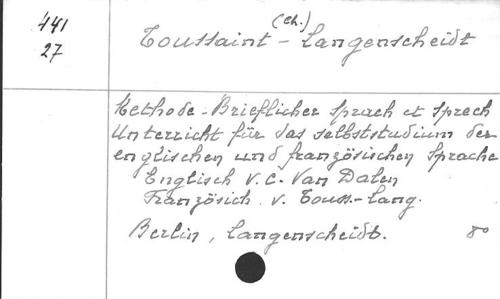 441
27
(Ch.)
Toussaint - Langenscheidt
Methode - Brieflicher Sprach et Sprech
Unterricht für das selbststudium der
englischen und französischen Sprache
Englisch v. C. Van Dalen
Französich v. Touss.-Lang.
Berlin, Langenscheidt. 8°